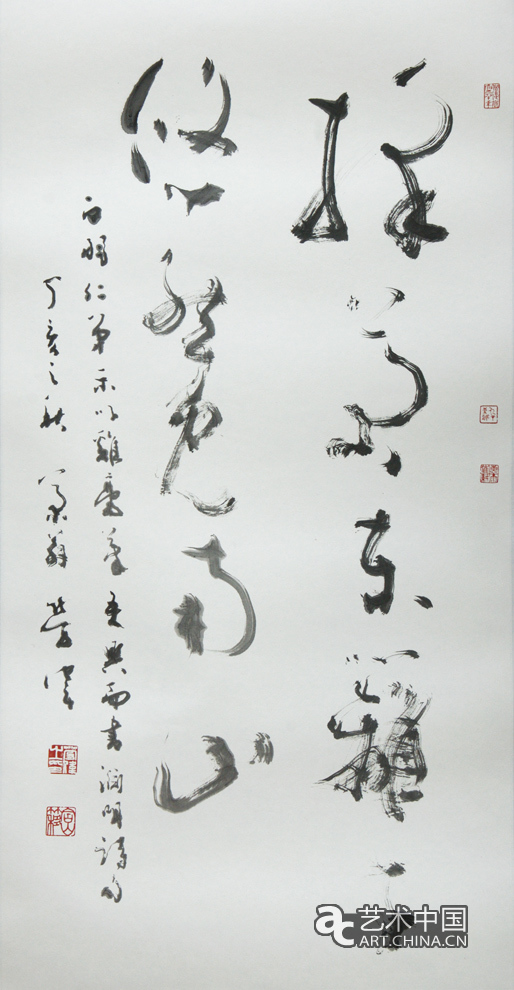 採菊東籬下
悠然見南山
明仁弟示以雞毫筆乘興而書淵明詩句
丁亥之秋
艺术中国
ART.CHINA.CN